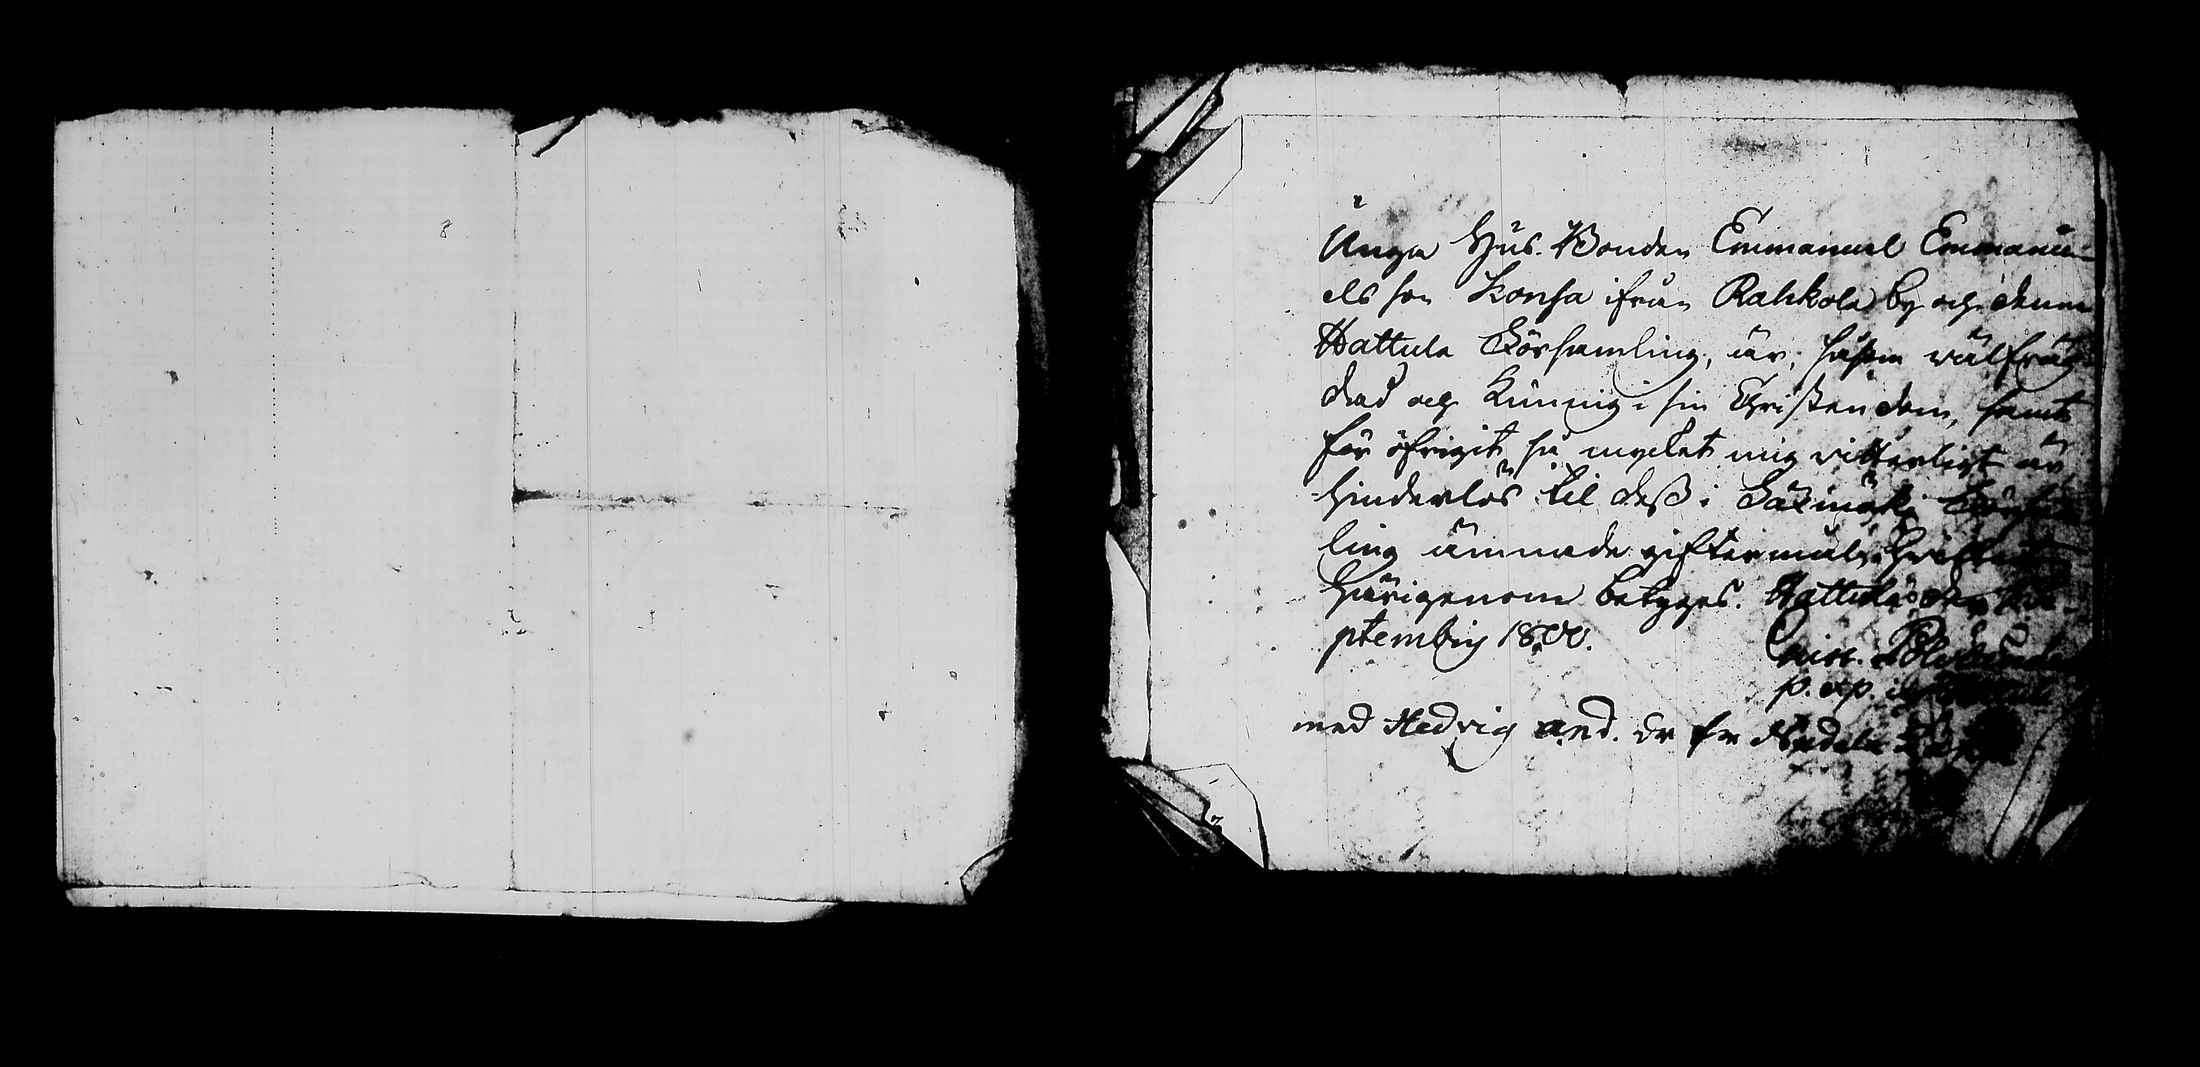 8
Unga Hus-Bonden Emmanuel Emmanu-
els son Konsa ifrån Rahkola by och denna
Hattula Församling, är såsom välfräg-
dad och kunnig i sin Christendom, samt
för öfrigit så mycket mig vitterligt är
hinderlös til dess i Församb-
ling ämnade giftermål,
härigenom betyges. Hattula den Se-
ptembris 1800.
p. et p. i
med Hedvig And. dr fr